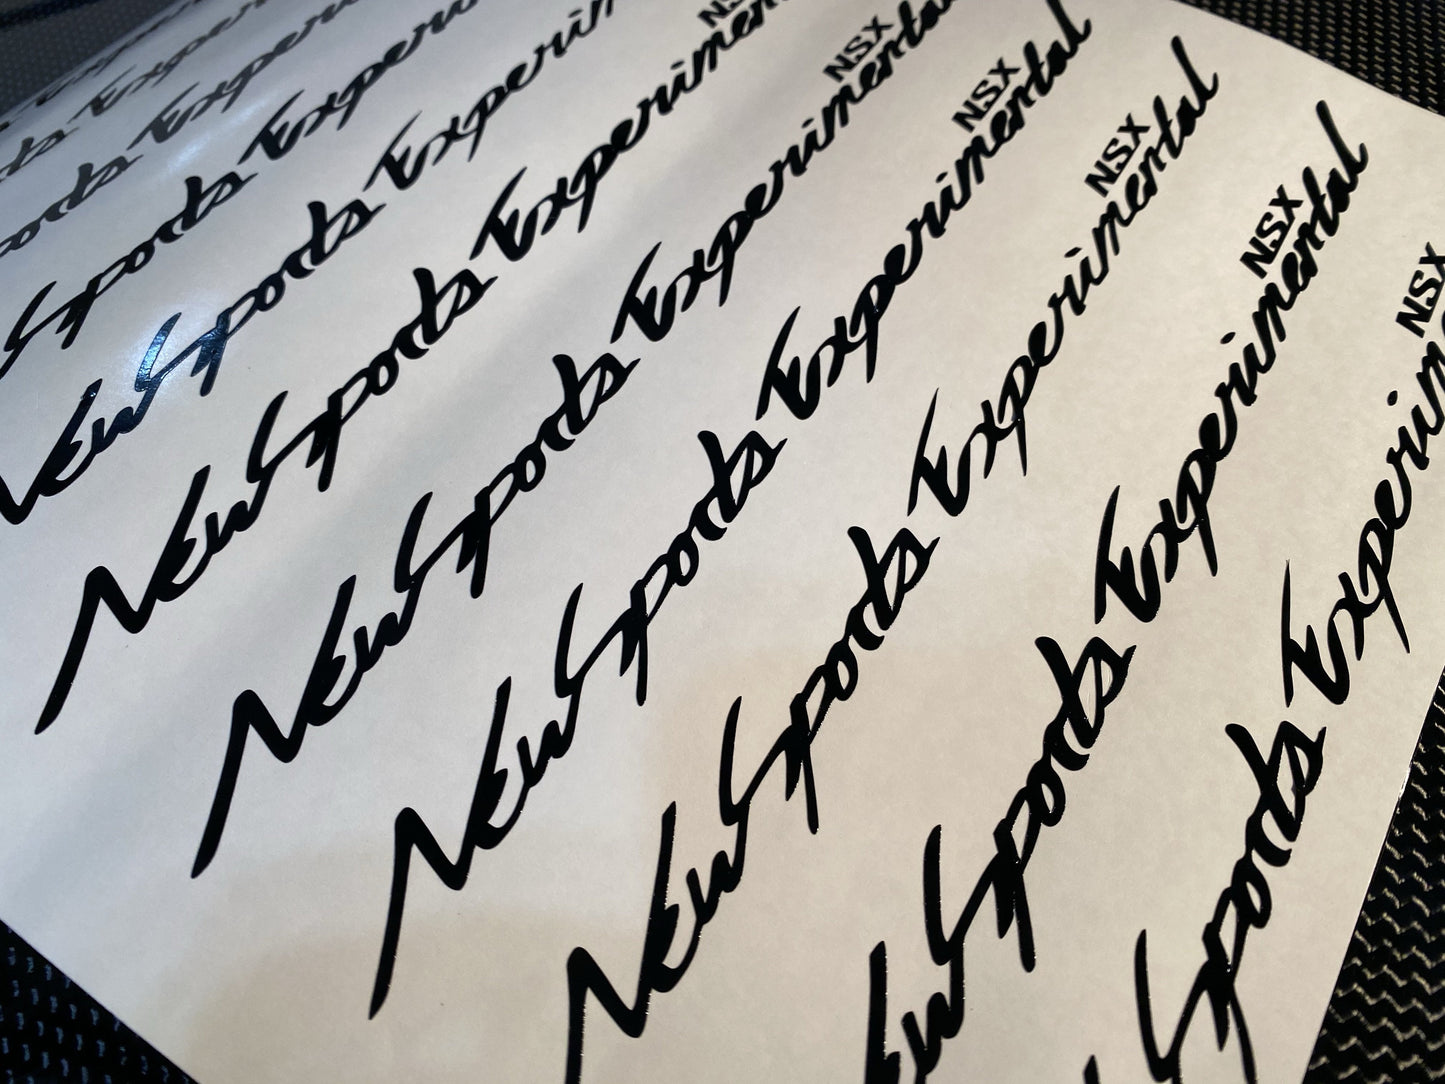 Sports Exper
New Sports Experim
NSX
New Sports Experimen
NSX
New Sports Experimental
NSX
New Sports Experimental
NSX
New Sports Experimental
NSX
New Sports Experimental
NSX
Sports Experim